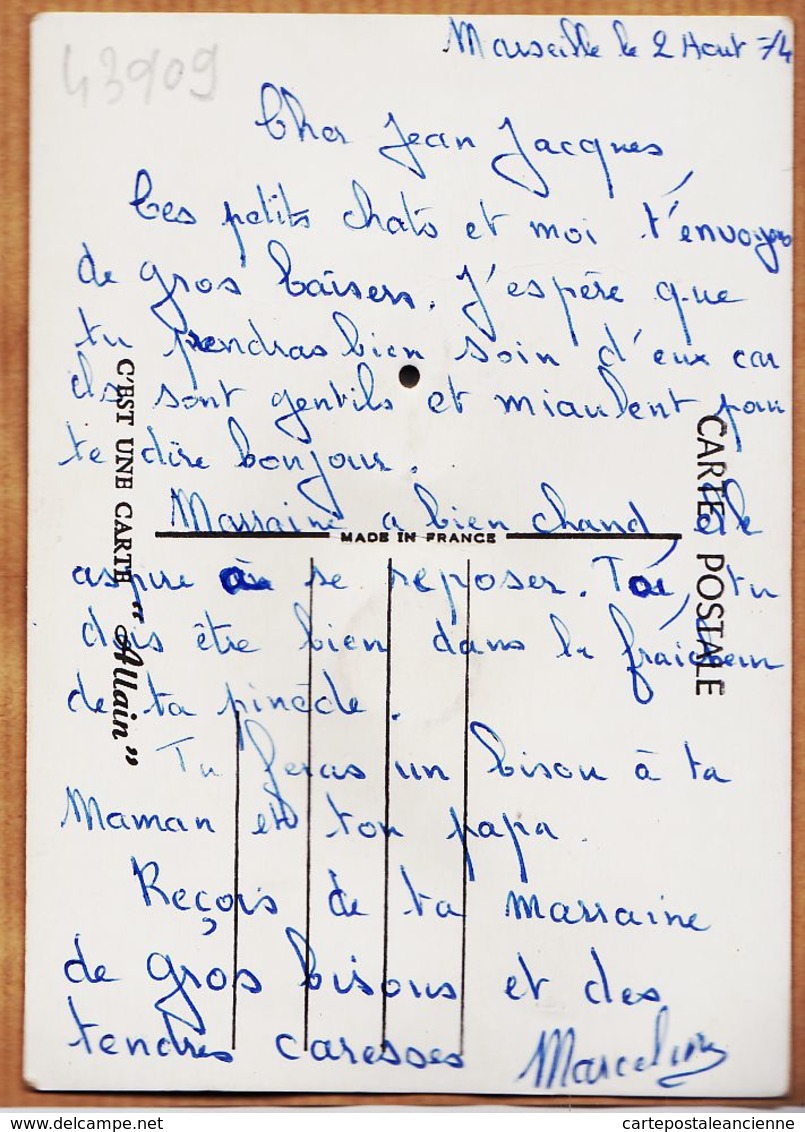 43909
Marseille le 2 Aout 74
Cher Jean Jacques
Ces petits chats et moi t'envoyons
de gros baisers. J'espère que
tu prendras bien soin d'eux car
ils sont gentils et miaulent pour
te dire bonjour.
Marraine a bien chaud, elle
MADE IN FRANCE
aspire à se reposer. Toi, tu
dois être bien dans la fraîcheur
de ta pinède.
Tu feras un bisou à ta
Maman et ton papa.
Reçois de ta marraine
de gros bisous et des
tendres caresses Marceline
C'EST UNE CARTE "Allain"
CARTE POSTALE
cartepostaleancienne